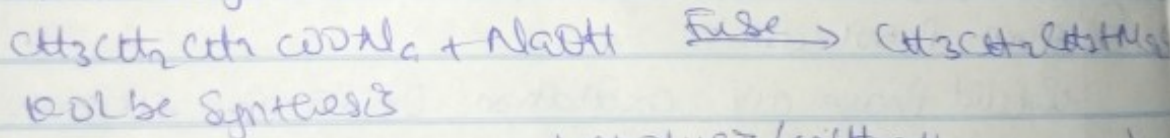 CH3CH2CH2COONa + NaOH Fuse → CH3CH2CH2+Na
Kolbe Synthesis